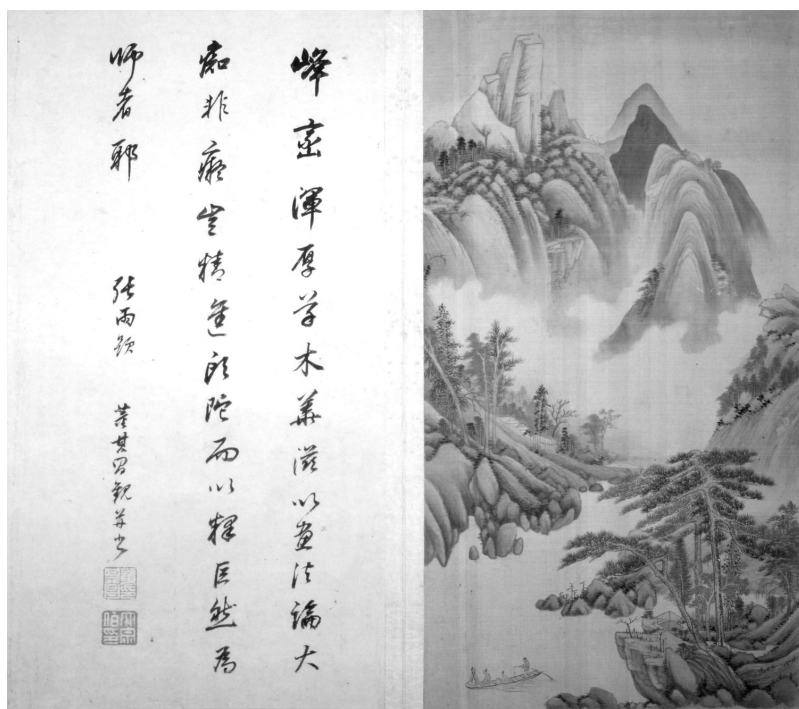 峰巒渾厚草木華滋以畫法論大
痴非癡豈精進頭陀而以釋巨然為
師者耶 張雨題 董其昌觀并書